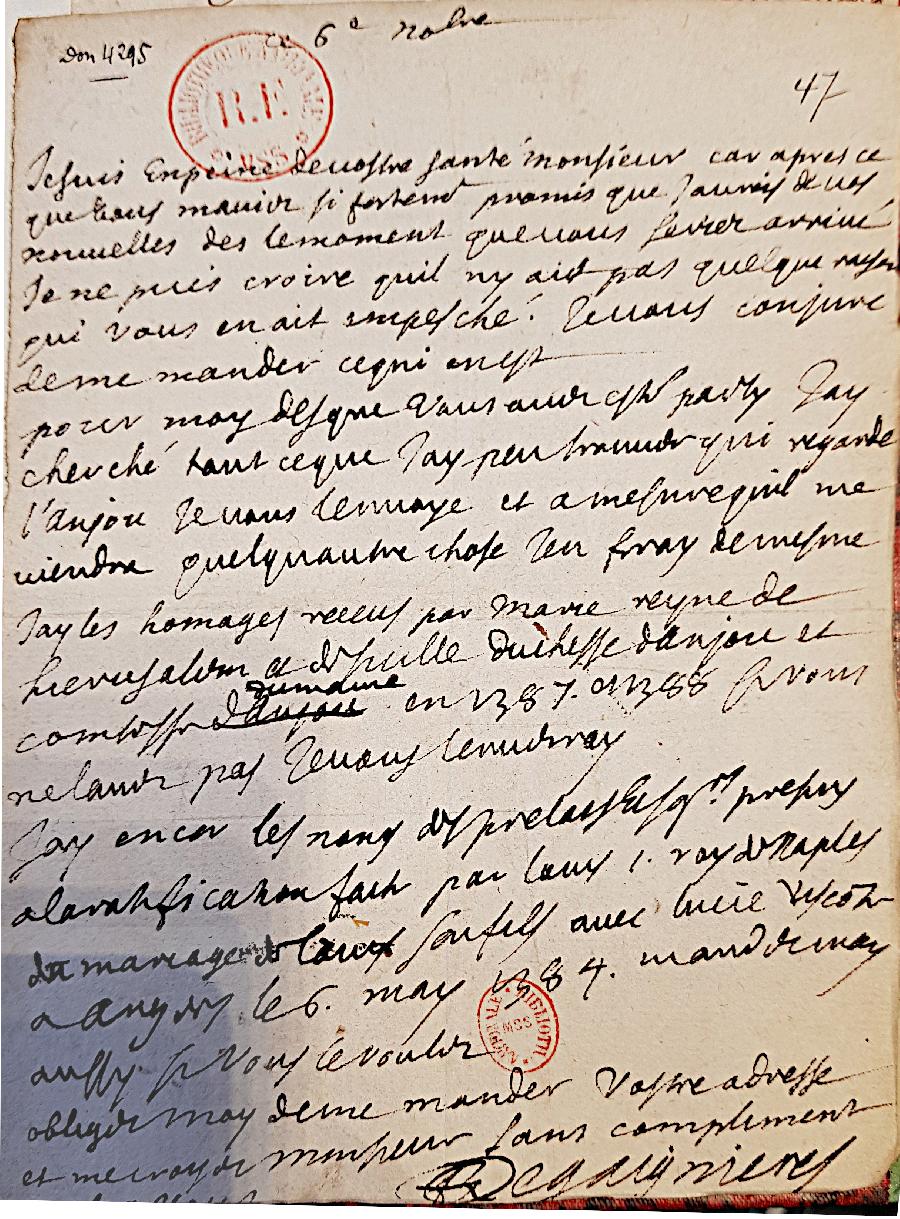 Don 4295
ce 6e nobre
BIBLIOTHEQUE NATIONALE
R.F.
MSS
47
Je suis En peine de vostre santé monsieur car apres ce
que vous maviez si fortemt promis que Jaurois de vos
nouvelles des le moment que vous seriez arrivé
Je ne puis croire quil ny ait pas quelque raison
qui vous en ait empesché. Je vous conjure
de me mander ce qui en est
pour moy des que Vous avez esté party Jay
cherché tout ce que Jay peu trouver qui regarde
l'anjou Je vous lenvoye et a mesure quil me
viendra quelquautre chose Jen feray de mesme
Jay les homages receus par Marie reyne de
hierusalem et de sicille duchesse danjou et
dumaine
comtesse danjou en 1387. et 1388 si vous
ne lavez pas Je vous lenvoiray
Jay encor les noms des prelats et sgrs presens
a la ratification faite par louis 1. roy de Naples
du mariage de louis son fils avec lucie Viscon
a Angers le 6. may 1384. mandez moy
aussy si vous le voulez
BIBLIOTH. NATIONALE
MSS
obligez moy de me mander Vostre adresse
et me croyez monsieur sans compliment
Degaignieres